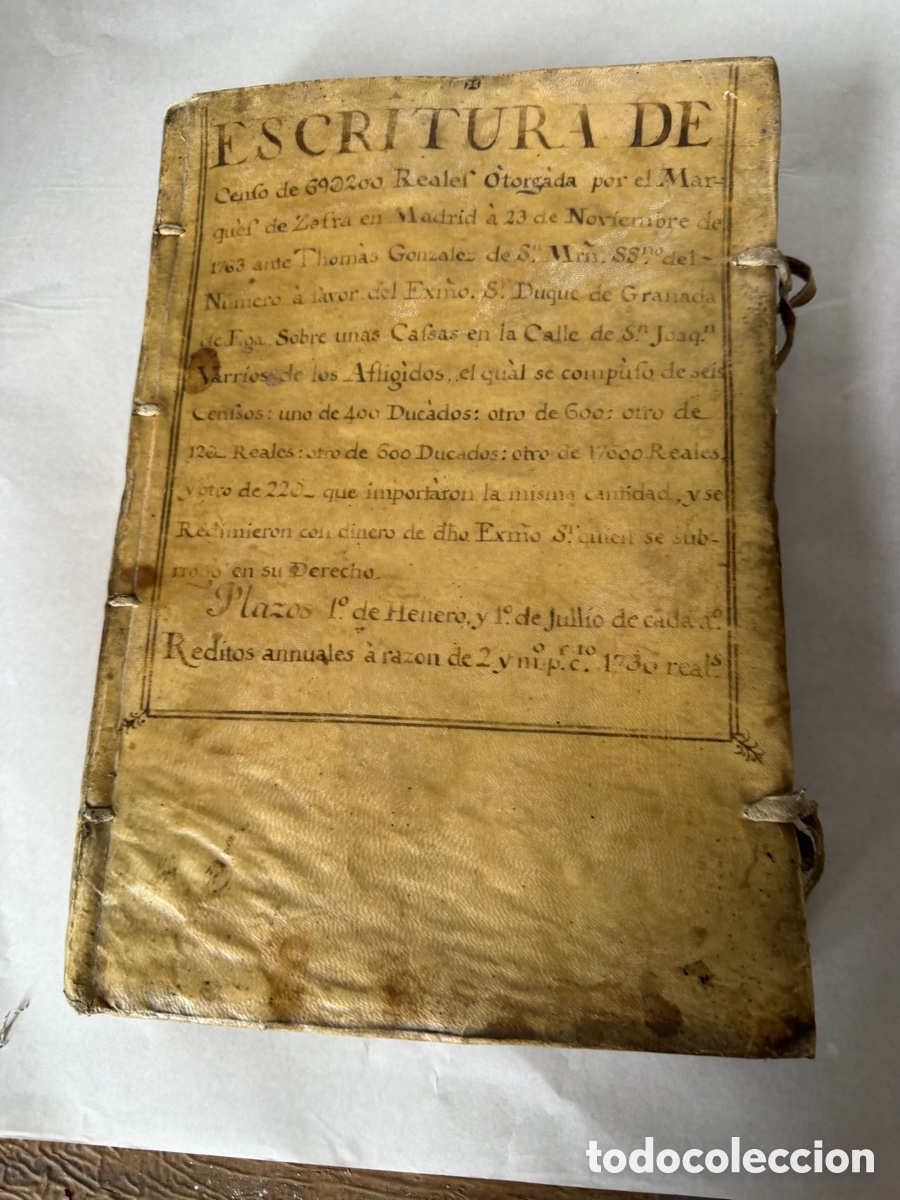 ESCRÎTURA DE
Censo de 69Ɔ200 Reales Òtorgàda por el Mar-
quès de Zafra en Madrid à 23 de Noviembre de
1763 ante Thomàs Gonzalez de Sn. Mrñ. SSno. del-
Numero à favor del Exmo. Sr. Duque de Granada
de Ega Sobre unas Cassas en la Calle de Sn. Joaqn.
Varrios de los Afligìdos, el quàl se compùso de seis
Censsos: uno de 400 Ducàdos: otro de 600: otro de
12Ɔ Reales: otro de 600 Ducados: otro de 17600 Reales,
y otro de 22Ɔ que importàron la misma cantidad, y se
Redimieron con dinero de dho Exmo Sr. quien se sub-
rrogó en su Derecho.
Plazos 1o. de Henero, y 1o. de Jullio de cada ao.
Reditos annuales à razon de 2 y mo. pr. cto. 1730 reals.
todocoleccion